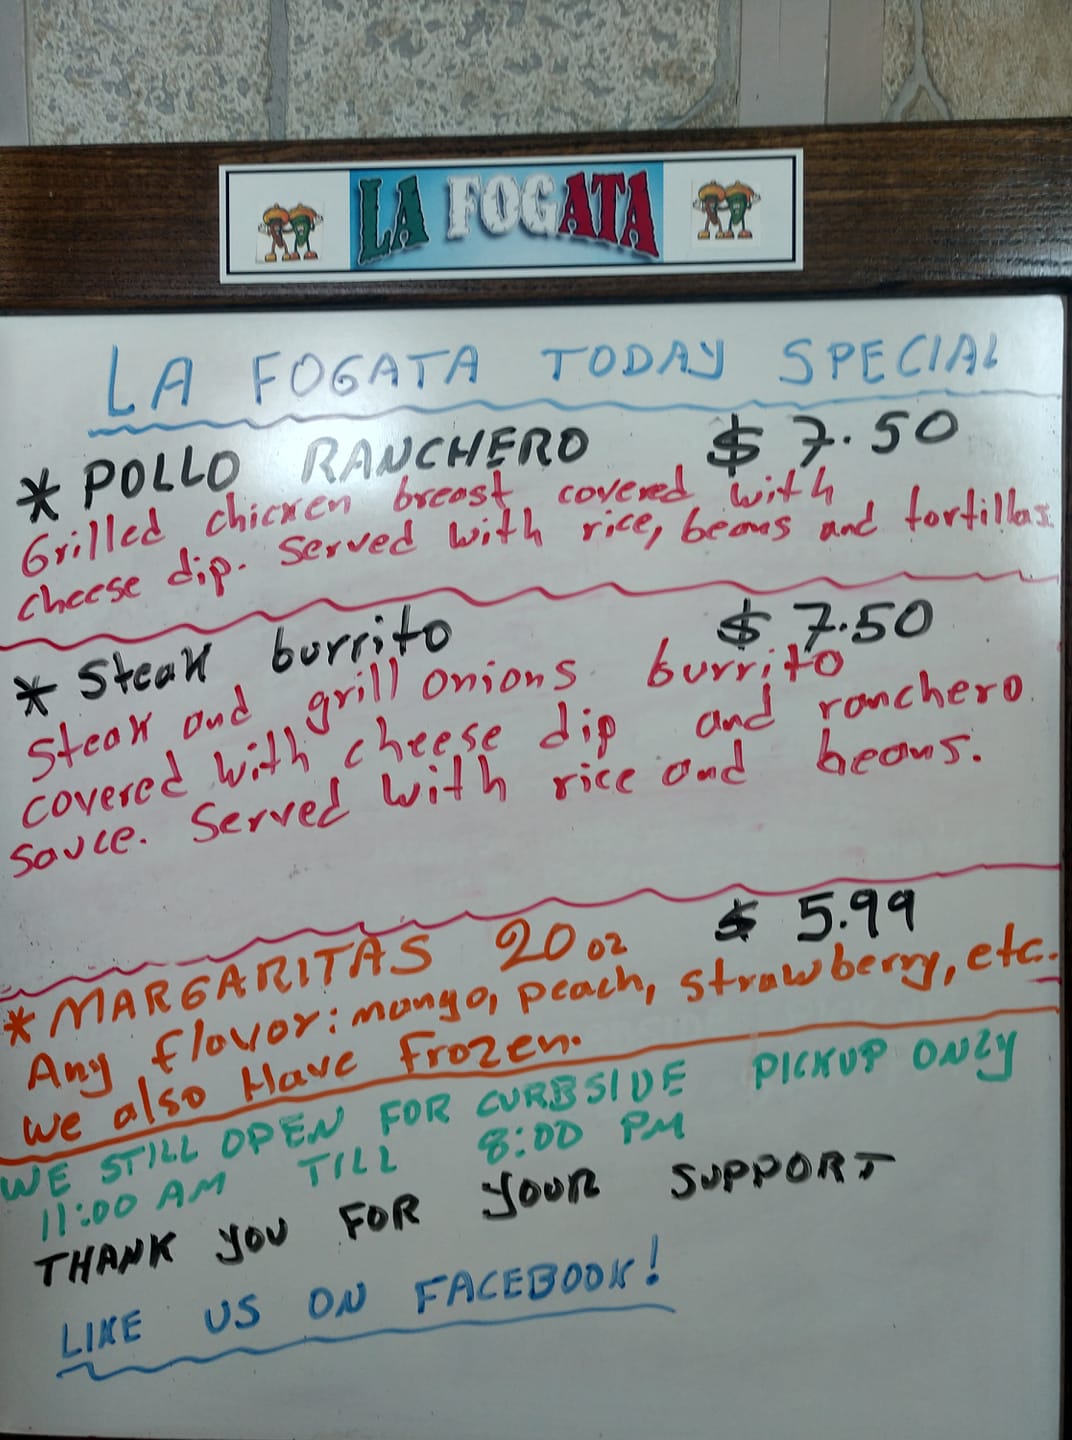 LA FOGATA
LA FOGATA TODAY SPECIAL
* POLLO RANCHERO $ 7.50
Grilled chicken breast covered with
cheese dip. Served with rice, beans and tortillas.
* Steak burrito $ 7.50
Steak and grill onions. burrito
covered with cheese dip and ranchero.
sauce. Served with rice and beans.
* MARGARITAS 20 oz $ 5.99
Any flavor: mango, peach, strawberry, etc.
We also Have Frozen.
WE STILL OPEN FOR CURBSIDE PICKUP ONLY
11:00 AM TILL 8:00 PM
THANK YOU FOR YOUR SUPPORT
LIKE US ON FACEBOOK!